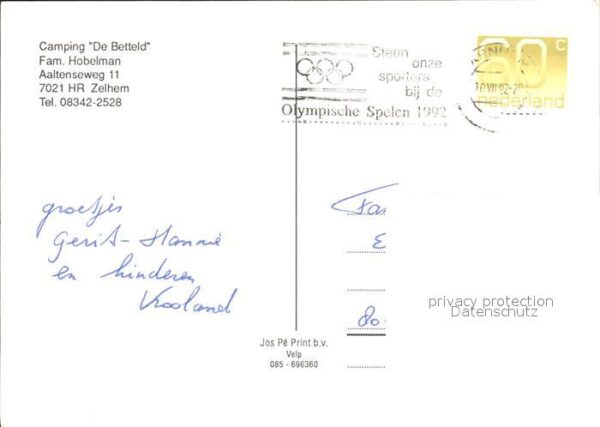 Camping "De Betteld"
Fam. Hobelman
Aaltenseweg 11
7021 HR Zelhem
Tel. 08342-2528
Steun
onze
sporters
bij de
Olympische Spelen 1992
60 c
nederland
10 VII 92
groetjes
Gerit-Hannie
en kinderen
Vrooland
Fam
E
80
privacy protection
Datenschutz
Jos Pé Print b.v.
Velp
085 - 696360